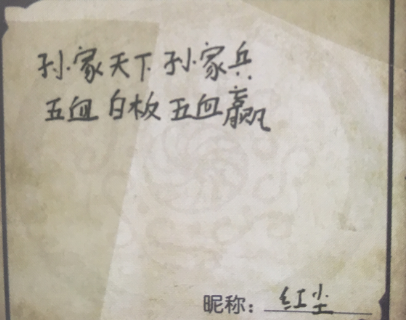 孙家天下孙家兵
五血白板五血赢
昵称：红尘